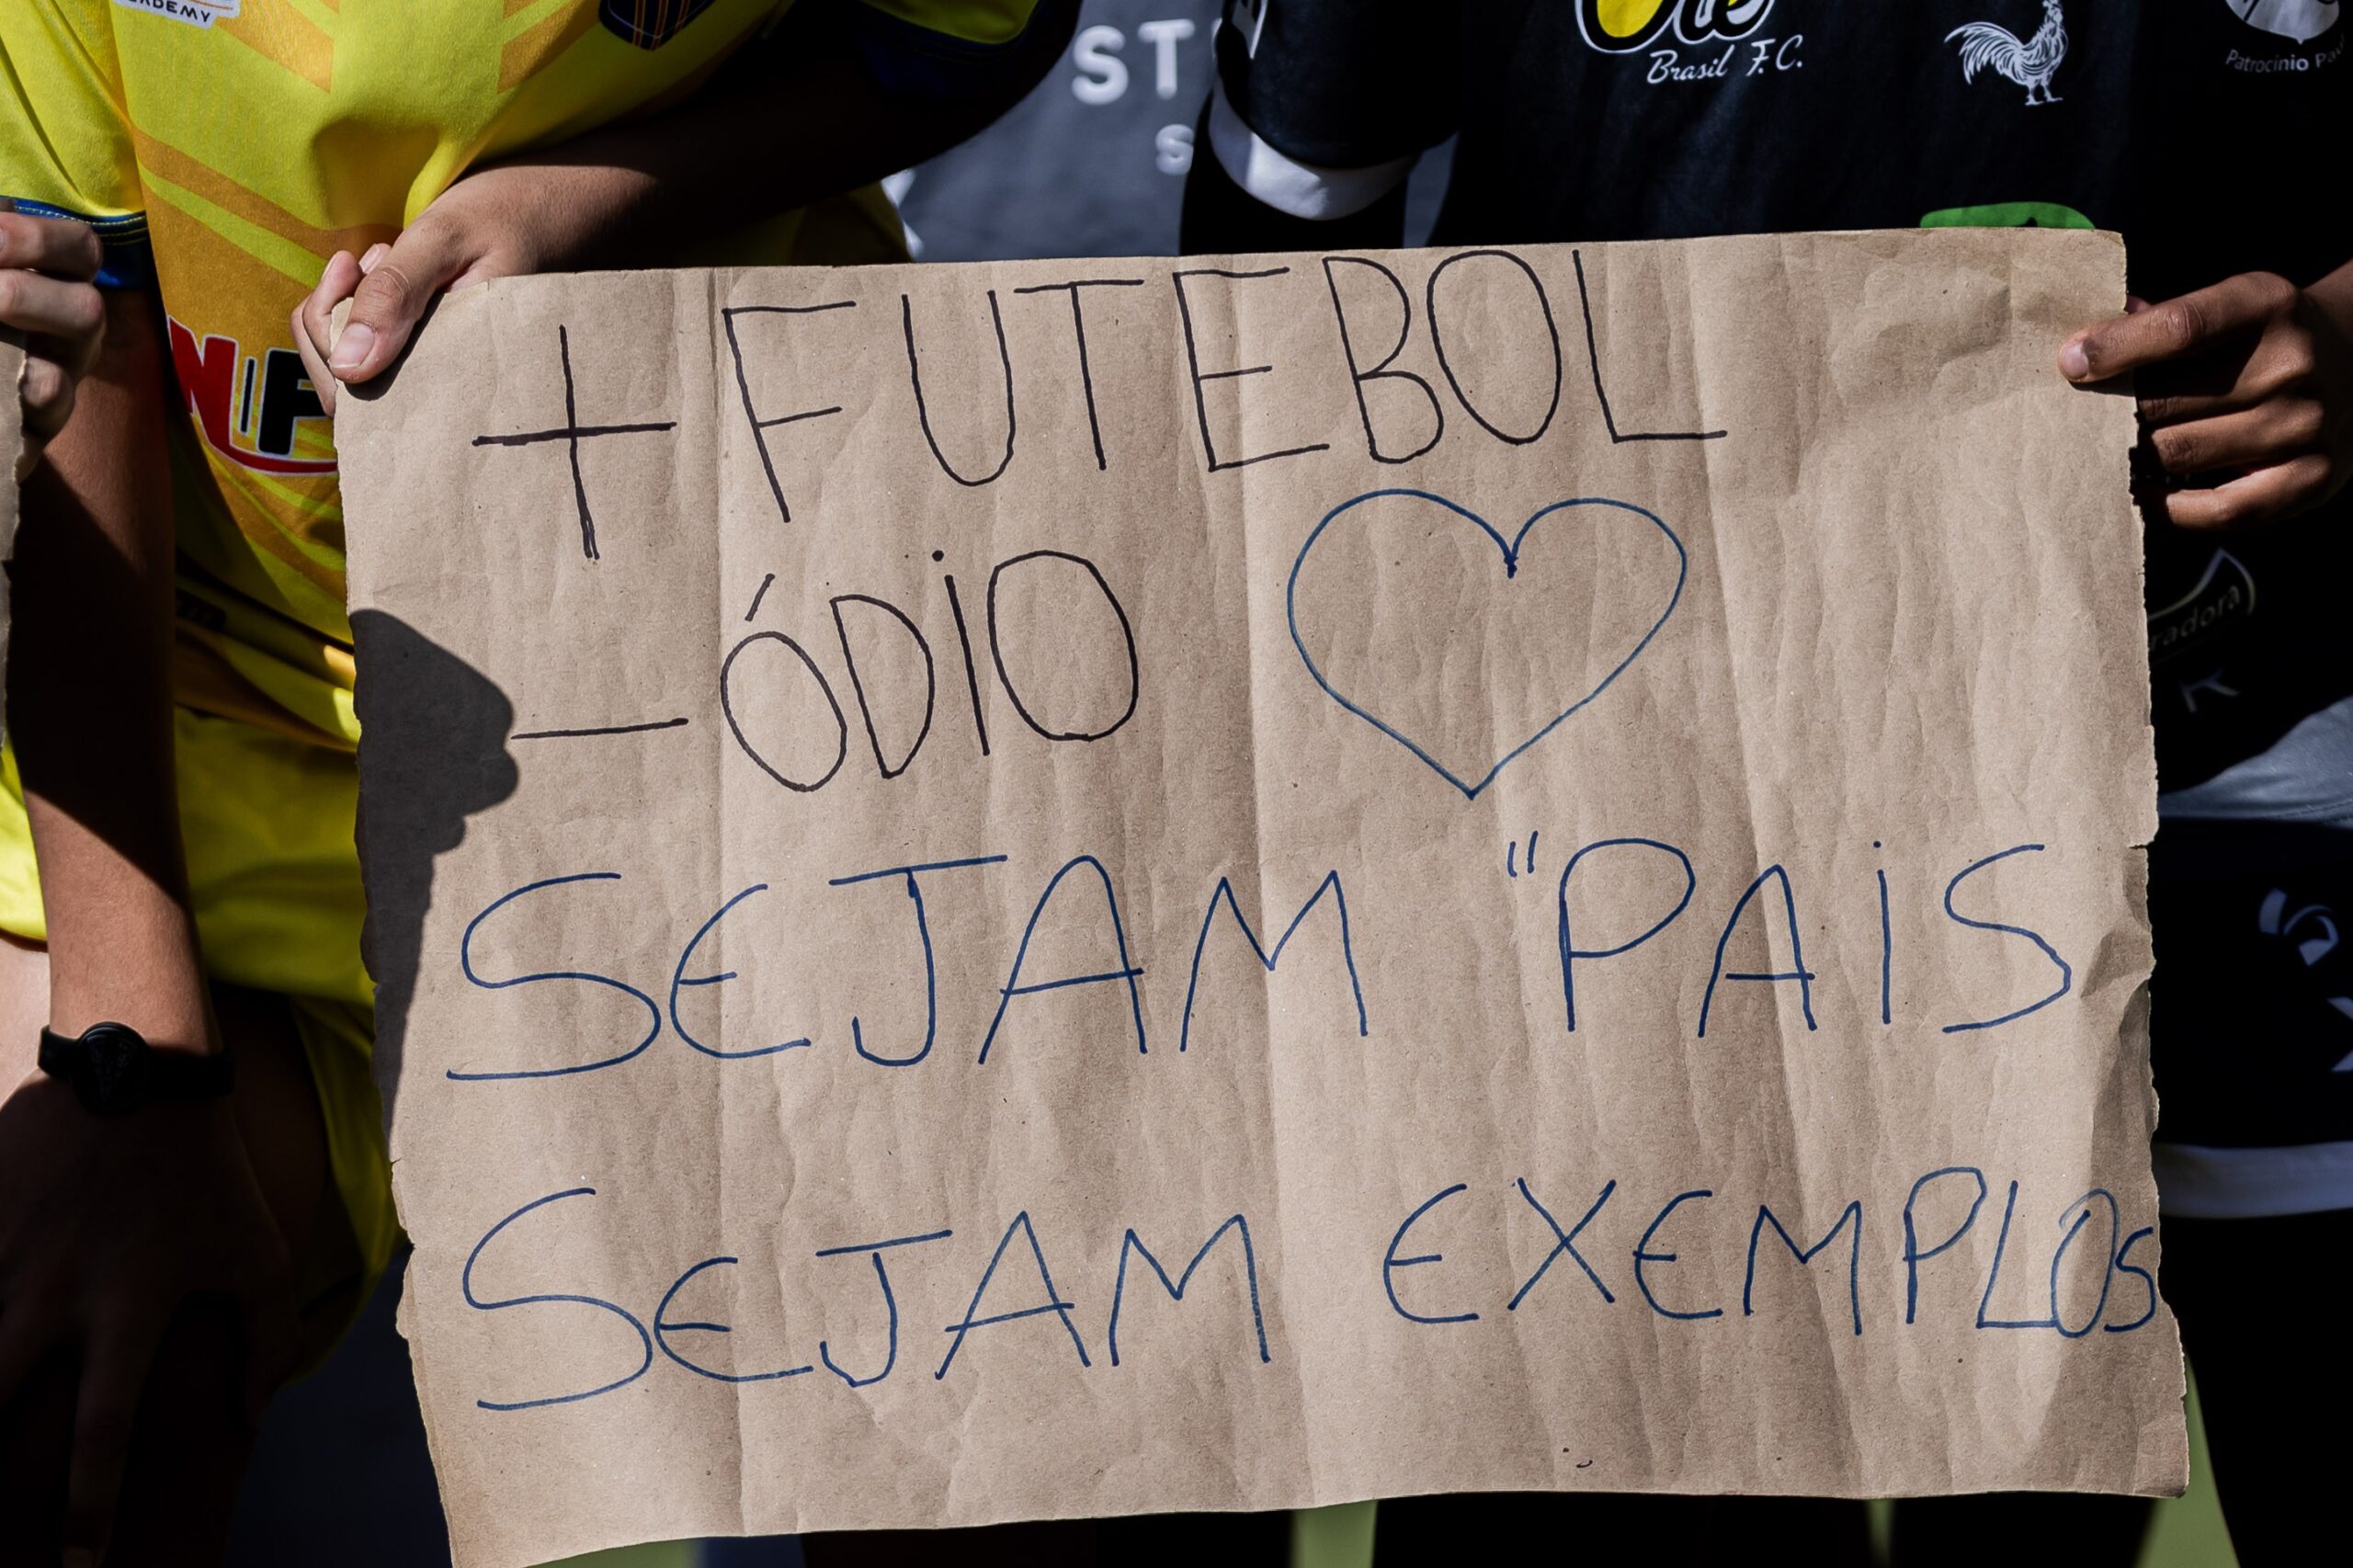 ACADEMY
ST
S
Brasil F.C.
Patrocínio
NF
+ FUTEBOL
- ÓDIO
SEJAM "PAIS
SEJAM EXEMPLOS
radora
K